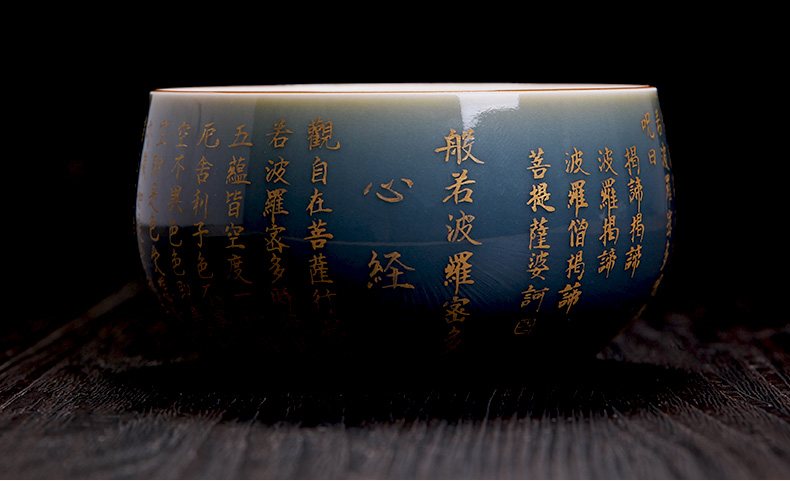 呪曰
揭諦揭諦
波羅揭諦
波羅僧揭諦
菩提薩婆訶
般若波羅密多
心経
觀自在菩薩行
若波羅密多時
五蘊皆空度一
厄舍利子色不
空不異色色即